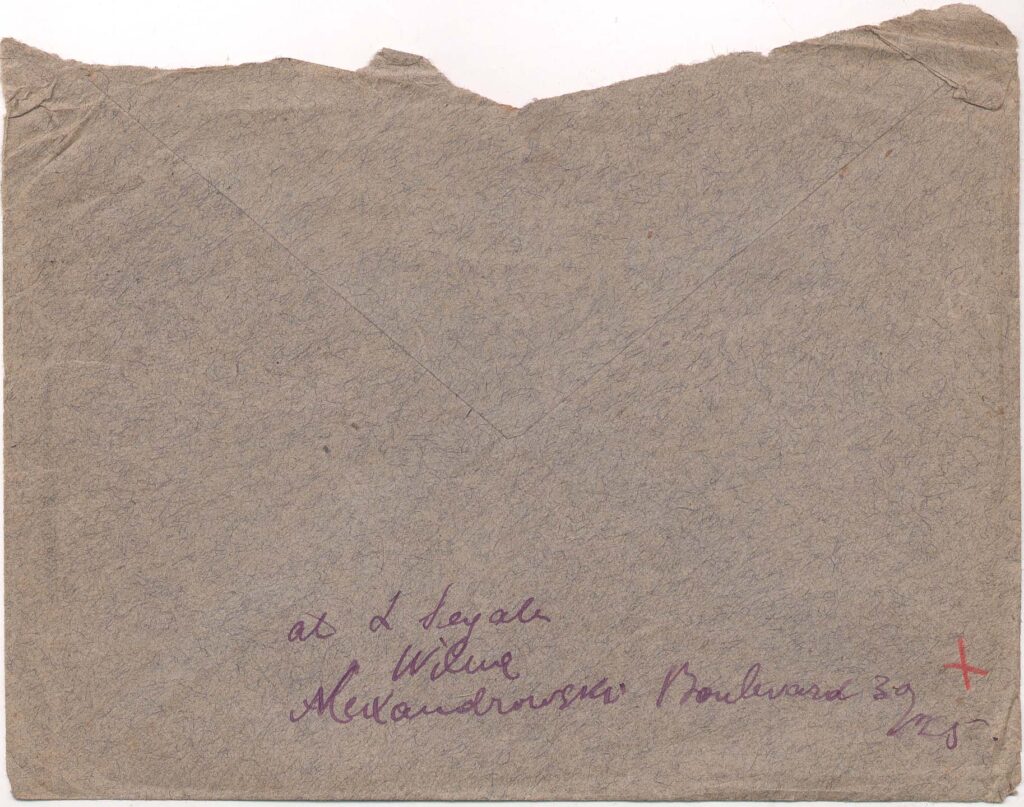 at L Segals
Wilna
Alexandrowski Boulevard 39